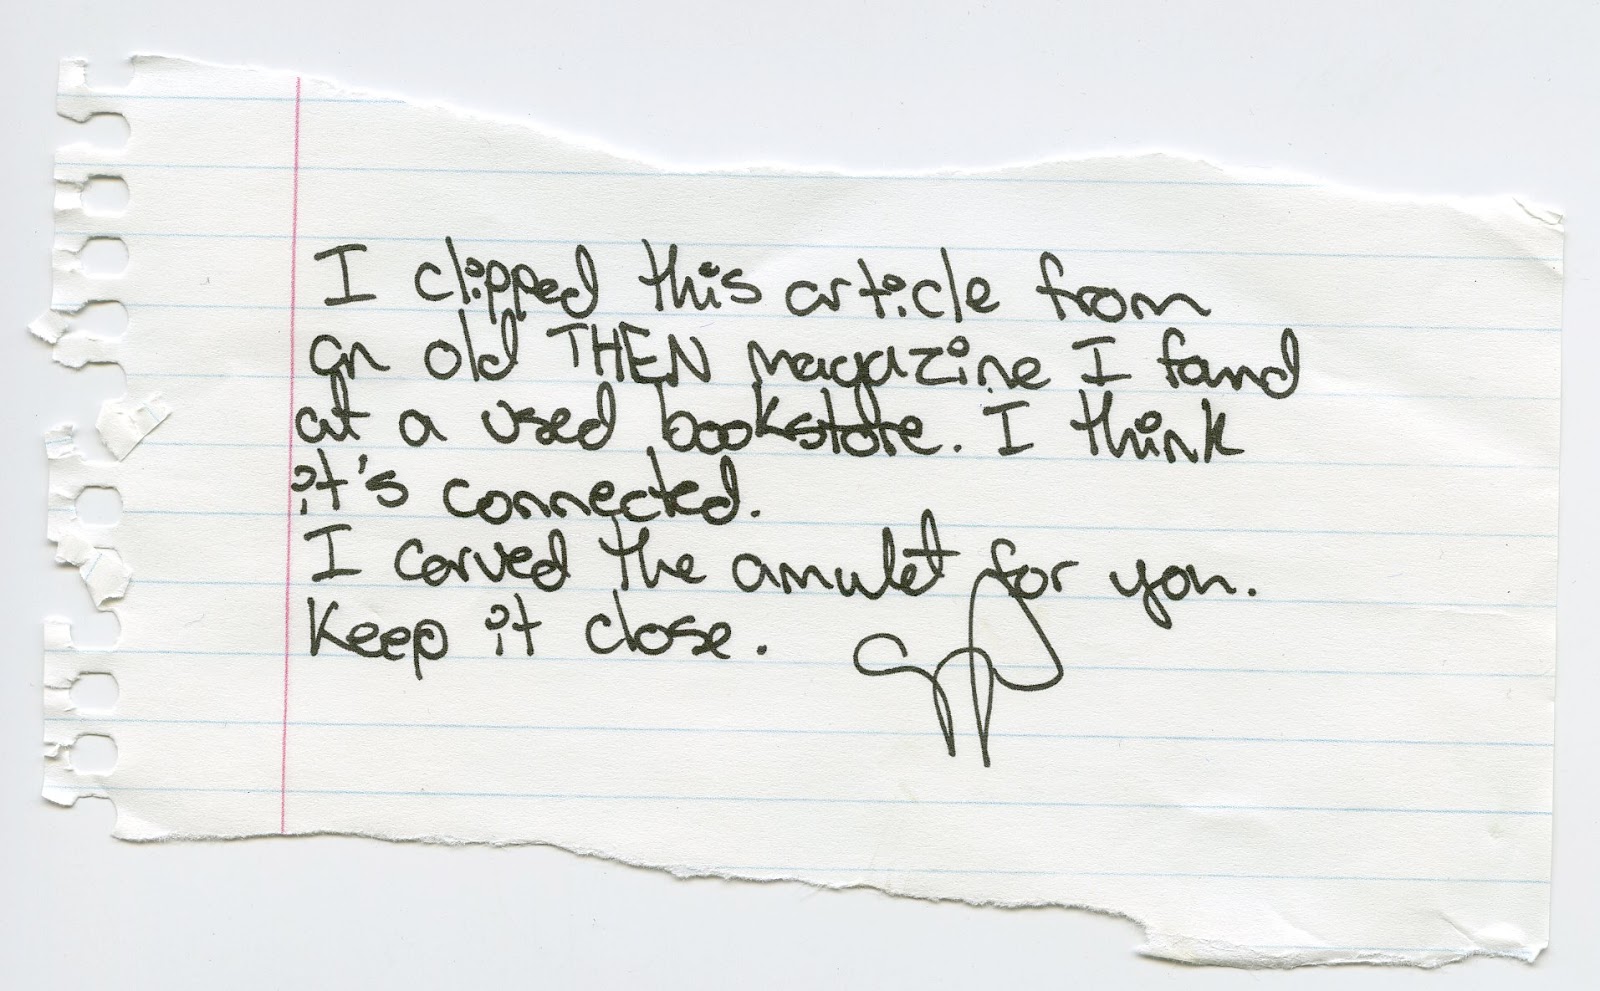 I clipped this article from
an old THEN magazine I found
at a used bookstore. I think
it's connected.
I carved the amulet for you.
Keep it close.